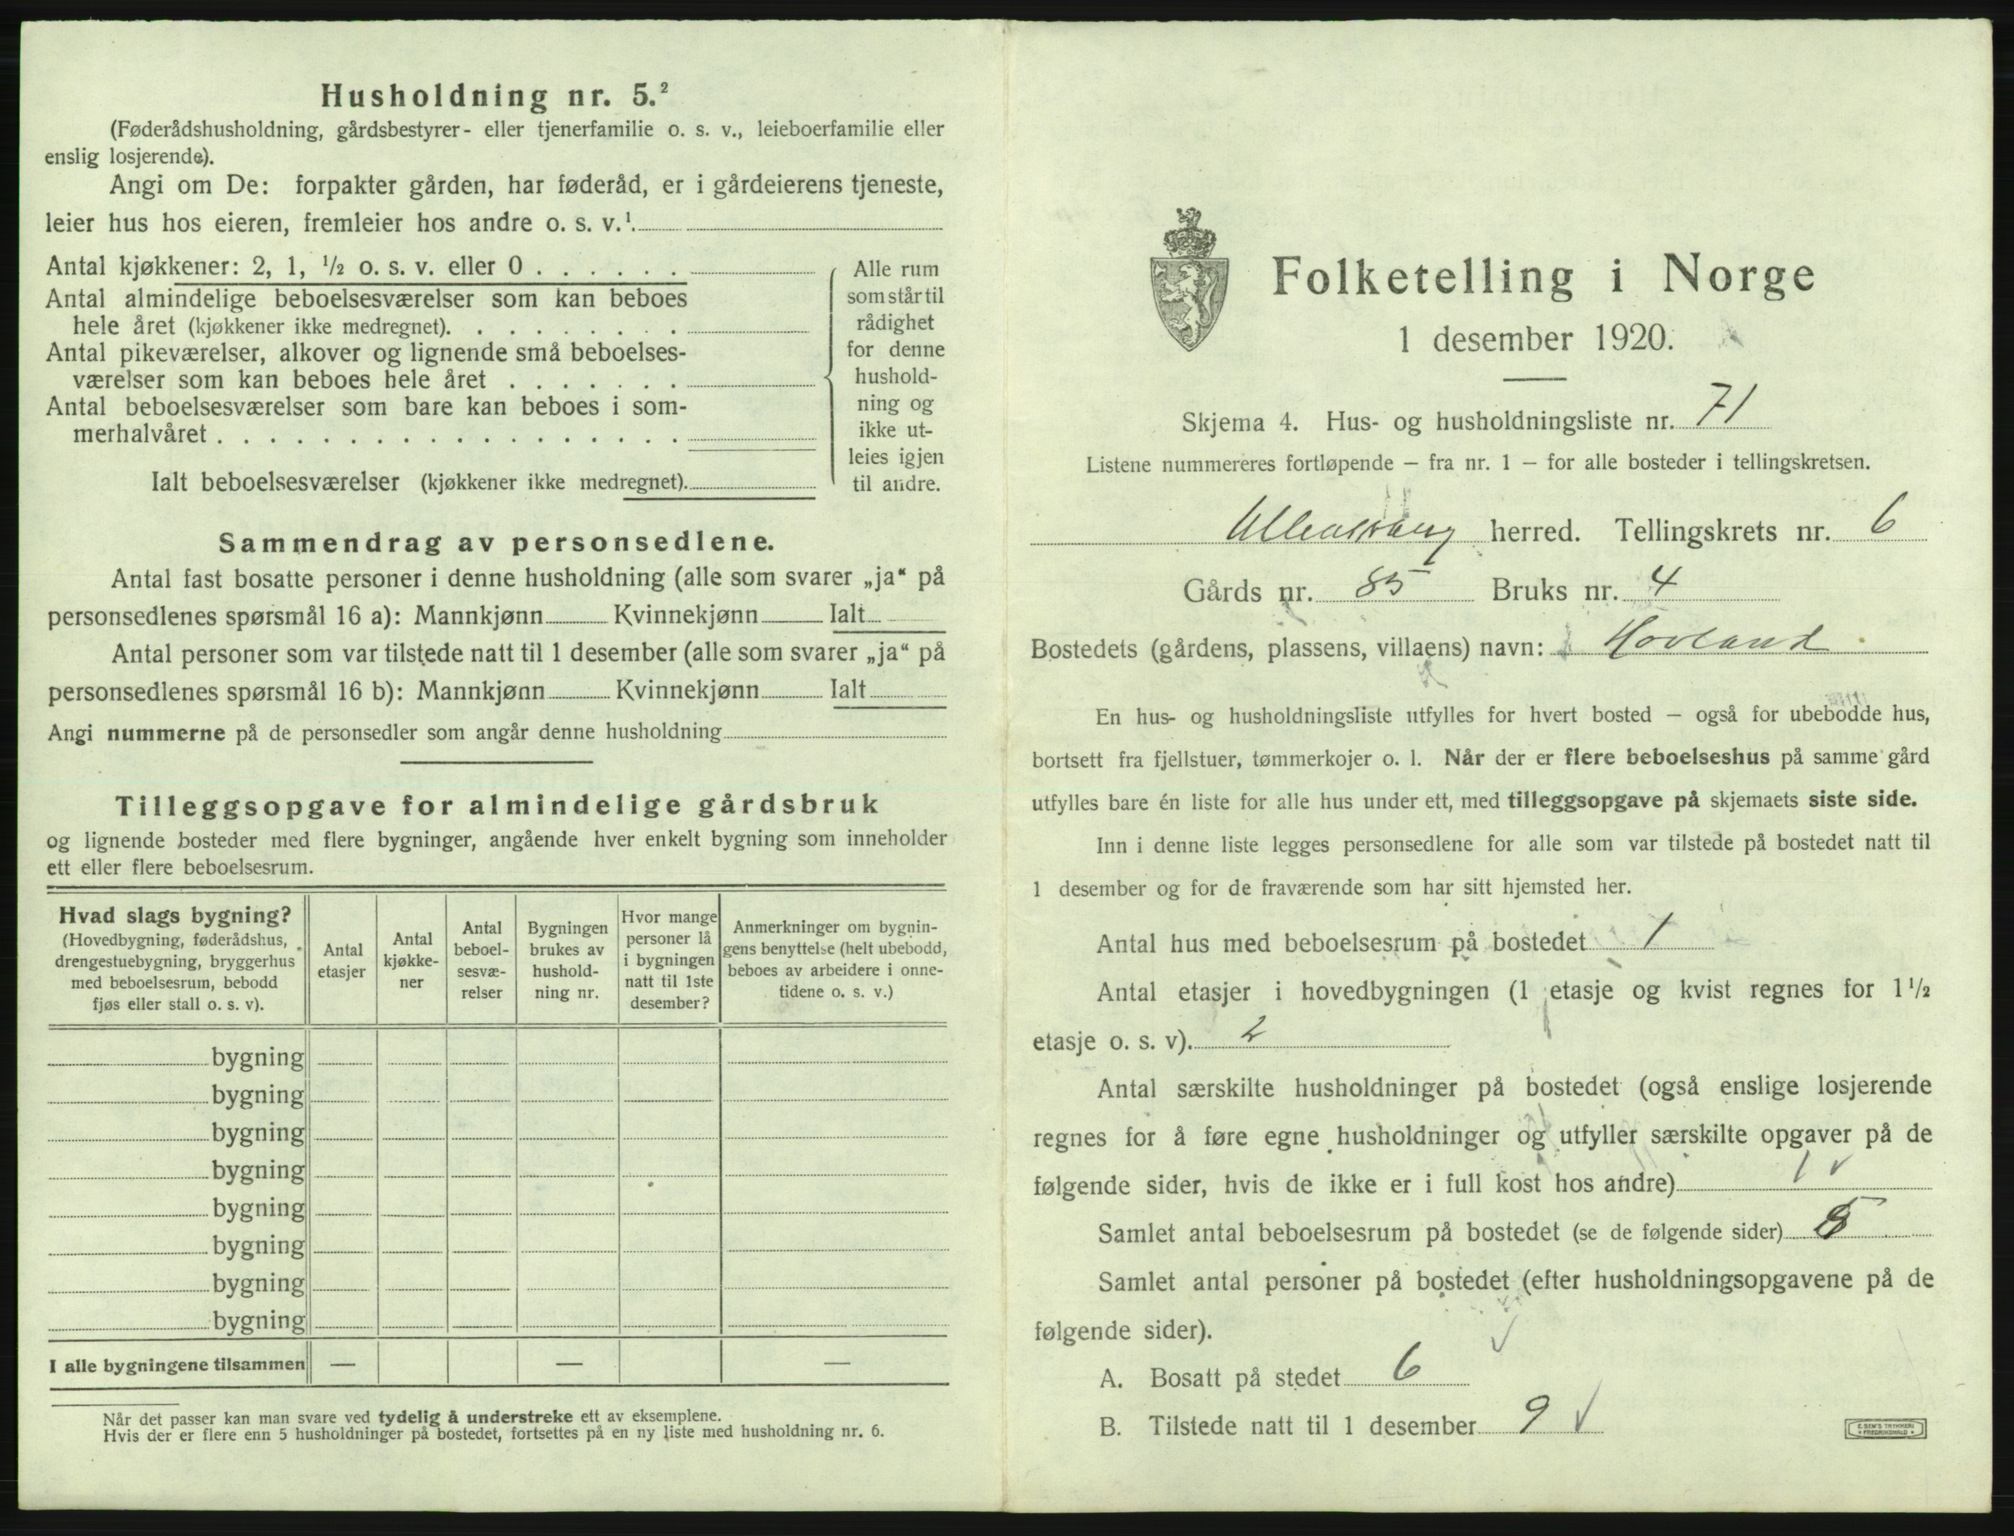 Husholdning nr. 5.²
(Føderådshusholdning, gårdsbestyrer- eller tjenerfamilie o. s. v., leieboerfamilie eller
enslig losjerende).
Angi om De: forpakter gården, har føderåd, er i gårdeierens tjeneste,
leier hus hos eieren, fremleier hos andre o. s. v.¹
Antal kjøkkener: 2, 1, ½ o. s. v. eller 0 . . . . . .
Antal almindelige beboelsesværelser som kan beboes
hele året (kjøkkener ikke medregnet). . . . . . . . .
Antal pikeværelser, alkover og lignende små beboelses-
værelser som kan beboes hele året . . . . . . .
Antal beboelsesværelser som bare kan beboes i som-
merhalvåret . . . . . . . . . . . . . . . . . .
Ialt beboelsesværelser (kjøkkener ikke medregnet).
Alle rum
som står til
rådighet
for denne
hushold-
ning og
ikke ut-
leies igjen
til andre.
Sammendrag av personsedlene.
Antal fast bosatte personer i denne husholdning (alle som svarer „ja“ på
personsedlenes spørsmål 16 a): Mannkjønn Kvinnekjønn Ialt
Antal personer som var tilstede natt til 1 desember (alle som svarer „ja“ på
personsedlenes spørsmål 16 b): Mannkjønn Kvinnekjønn Ialt
Angi nummerne på de personsedler som angår denne husholdning
Tilleggsopgave for almindelige gårdsbruk
og lignende bosteder med flere bygninger, angående hver enkelt bygning som inneholder
ett eller flere beboelsesrum.
Hvad slags bygning?
(Hovedbygning, føderådshus,
drengestuebygning, bryggerhus
med beboelsesrum, bebodd
fjøs eller stall o. s. v).
Antal
etasjer
Antal
kjøkke-
ner
Antal
beboel-
sesvæ-
relser
Bygningen
brukes av
hushold-
ning nr.
Hvor mange
personer lå
i bygningen
natt til 1ste
desember?
Anmerkninger om bygnin-
gens benyttelse (helt ubebodd,
beboes av arbeidere i onne-
tidene o. s. v.)
bygning
bygning
bygning
bygning
bygning
bygning
bygning
bygning
I alle bygningene tilsammen — — —
Når det passer kan man svare ved tydelig å understreke ett av eksemplene.
Hvis der er flere enn 5 husholdninger på bostedet, fortsettes på en ny liste med husholdning nr. 6.
Folketelling i Norge
1 desember 1920.
Skjema 4. Hus- og husholdningsliste nr. 71
Listene nummereres fortløpende – fra nr. 1 – for alle bosteder i tellingskretsen.
Ullensvang herred. Tellingskrets nr. 6
Gårds nr. 85 Bruks nr. 4
Bostedets (gårdens, plassens, villaens) navn: Hovland
En hus- og husholdningsliste utfylles for hvert bosted – også for ubebodde hus,
bortsett fra fjellstuer, tømmerkojer o. l. Når der er flere beboelseshus på samme gård
utfylles bare én liste for alle hus under ett, med tilleggsopgave på skjemaets siste side.
Inn i denne liste legges personsedlene for alle som var tilstede på bostedet natt til
1 desember og for de fraværende som har sitt hjemsted her.
Antal hus med beboelsesrum på bostedet 1
Antal etasjer i hovedbygningen (1 etasje og kvist regnes for 1½
etasje o. s. v). 2
Antal særskilte husholdninger på bostedet (også enslige losjerende
regnes for å føre egne husholdninger og utfyller særskilte opgaver på de
følgende sider, hvis de ikke er i full kost hos andre) 1 ✓
Samlet antal beboelsesrum på bostedet (se de følgende sider)
Samlet antal personer på bostedet (efter husholdningsopgavene på de
følgende sider). ✓
A. Bosatt på stedet 6
B. Tilstede natt til 1 desember 9 ✓
E. SEM'S TRYKKERI
FREDRIKSHALD